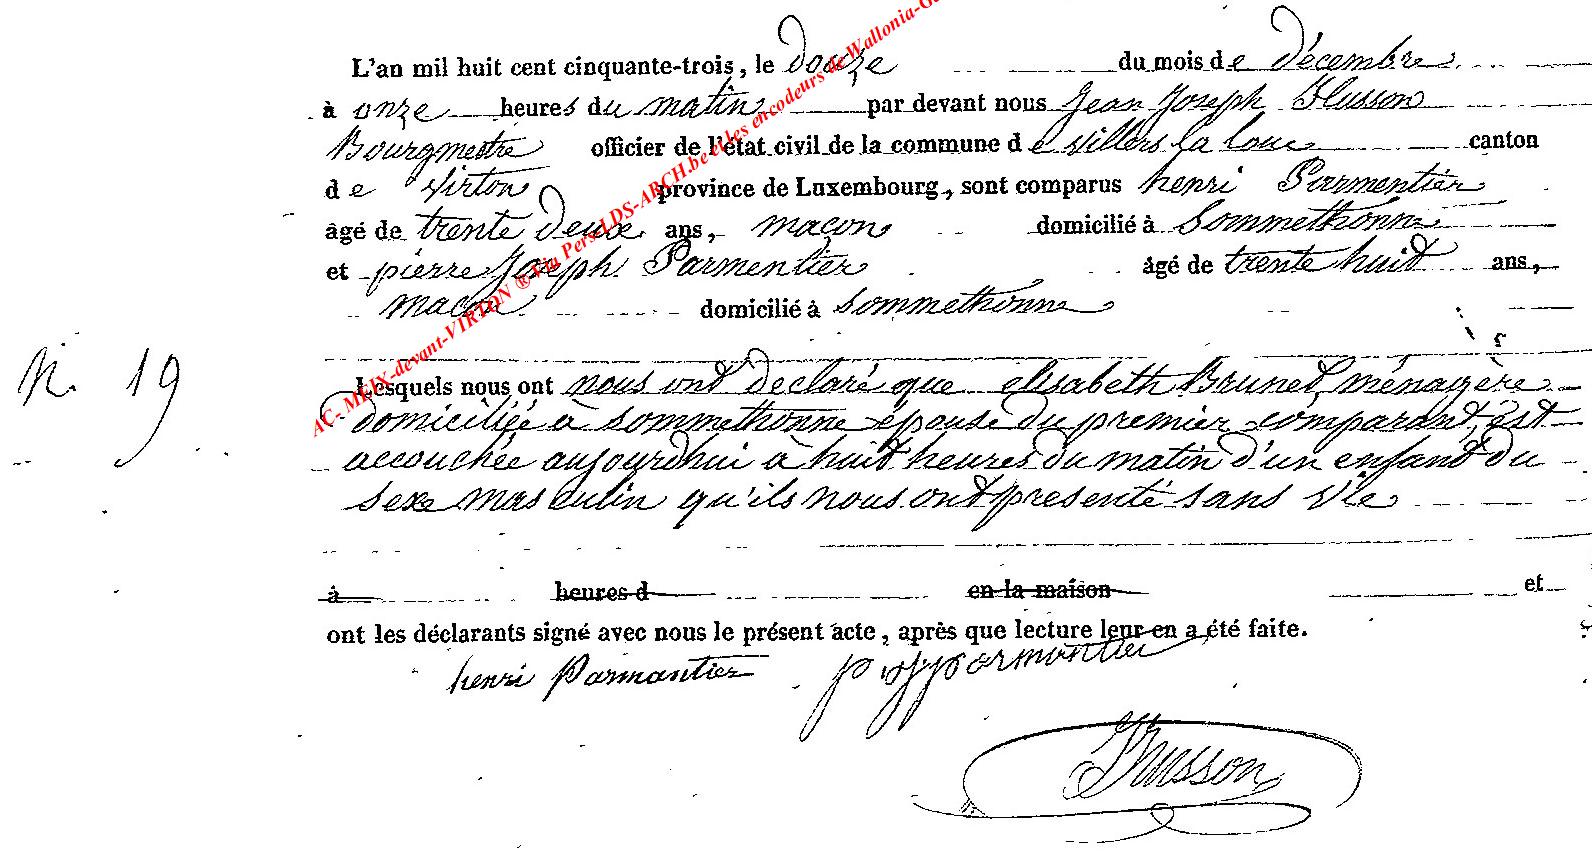 L'an mil huit cent cinquante-trois, le douze du mois de décembre
à onze heures du matin par devant nous Jean Joseph Husson
Bourgmestre officier de l'état civil de la commune de villers la loue canton
de virton province de Luxembourg, sont comparus henri Parmentier
âgé de trente deux ans, maçon domicilié à Sommethonne
et pierre Joseph Parmentier âgé de trente huit ans,
maçon domicilié à Sommethonne
N. 19
Lesquels nous ont nous ont declaré que elisabeth Brunet, ménagère
domiciliée à sommethonne épouse du premier comparant, est
accouchée aujourdhui à huit heures du matin d'un enfant du
sexe masculin qu'ils nous ont presenté sans vie
à heures d en la maison et
ont les déclarants signé avec nous le présent acte, après que lecture leur en a été faite.
henri Parmantier pj parmentier
JHusson
AC-MEIX-devant-VIRTON ® Via Pers LDS-ARCH.be et les encodeurs de Wallonia-G